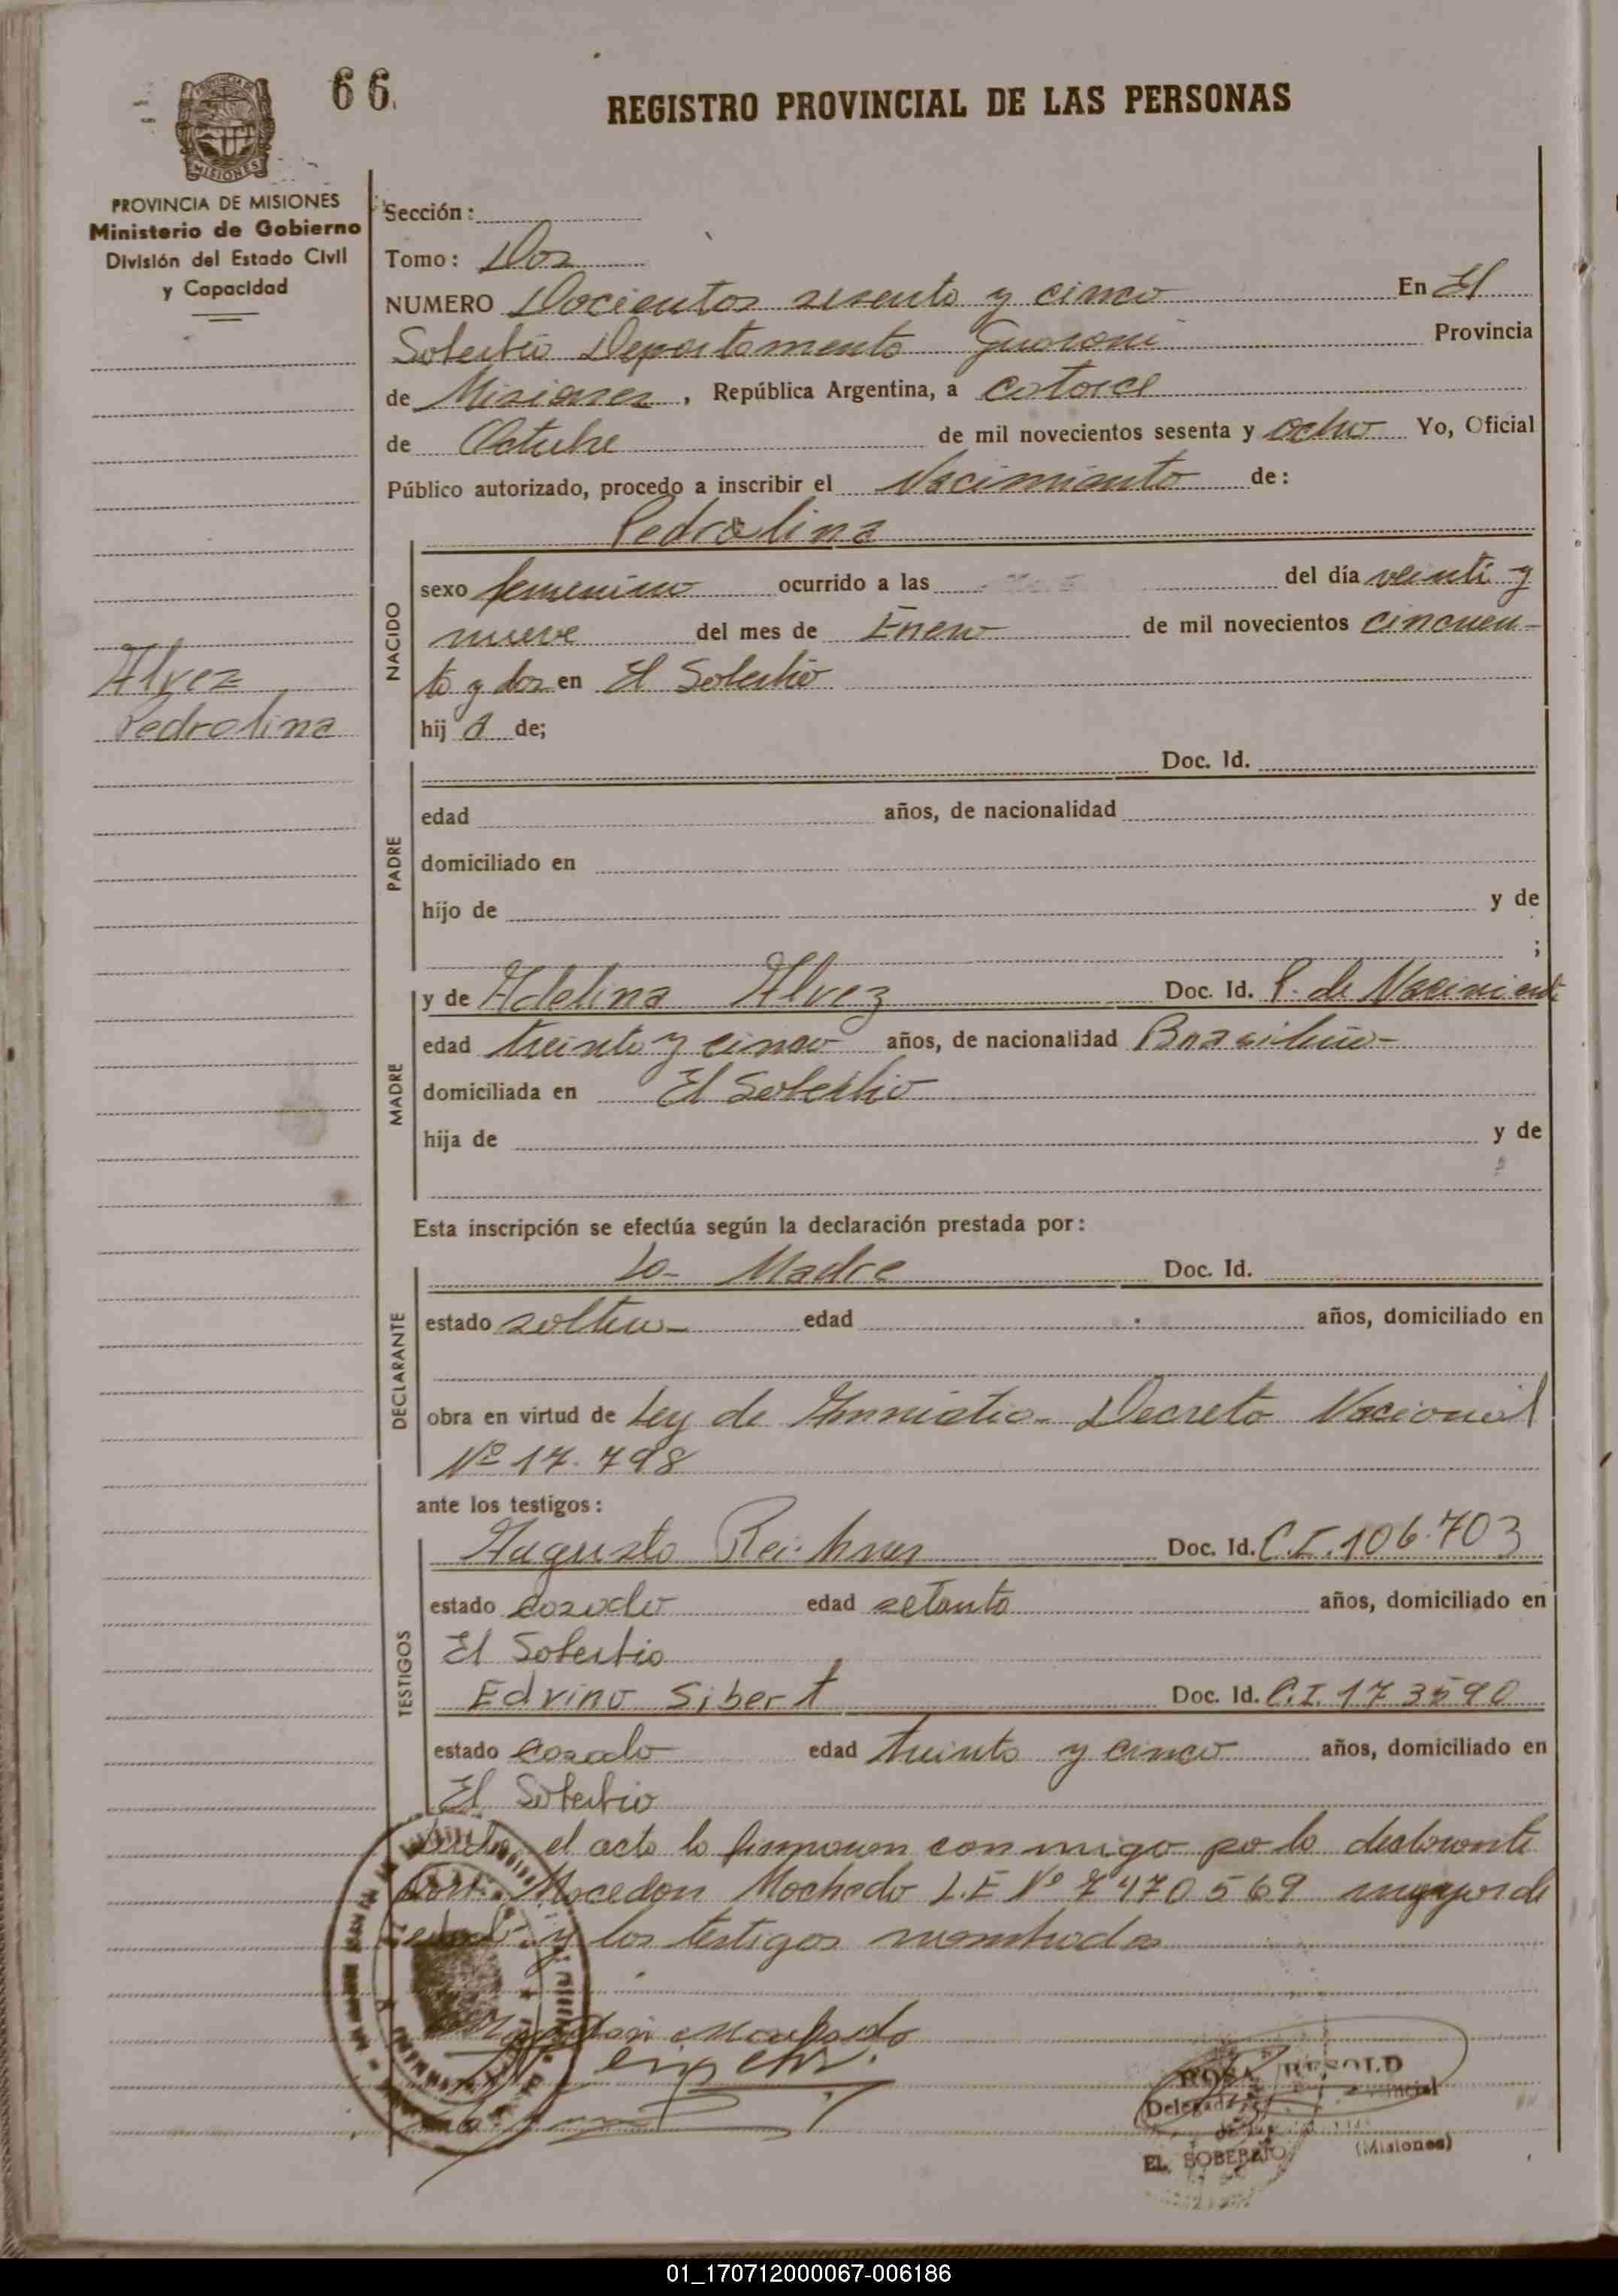 66.
REGISTRO PROVINCIAL DE LAS PERSONAS
PROVINCIA DE MISIONES
Ministerio de Gobierno
División del Estado Civil
y Capacidad
Sección:
Tomo: Dos
NUMERO Docientos sesenta y cinco En El
Soberbio Departamento Guarani Provincia
de Misiones, República Argentina, a catorce
de Octubre de mil novecientos sesenta y ocho Yo, Oficial
Público autorizado, procedo a inscribir el Nacimiento de:
Pedrolina
NACIDO
sexo femenino ocurrido a las del día veinti y
nueve del mes de Enero de mil novecientos cincuen-
ta y dos en El Soberbio
hij a de;
Alvez
Pedrolina
PADRE
Doc. Id.
edad años, de nacionalidad
domiciliado en
hijo de y de
;
MADRE
y de Adelina Alvez Doc. Id. P. de Nacimiento
edad treinta y cinco años, de nacionalidad Brasileña-
domiciliada en El Soberbio
hija de y de
Esta inscripción se efectúa según la declaración prestada por:
DECLARANTE
La Madre Doc. Id.
estado soltera edad años, domiciliado en
obra en virtud de Ley de Amnistia- Decreto Nacional
Nº 17.798
ante los testigos:
TESTIGOS
Augusto Doc. Id. C.I. 106.703
estado casado edad setanta años, domiciliado en
El Soberbio
Edvino Sibert Doc. Id. C.I. 173590
estado casado edad treinta y cinco años, domiciliado en
El Soberbio
el acta la firmaron conmigo por la declarante
Macedon Machado L.E Nº 7470569 mayor de
edad y los testigos nombrados
ROSA
EL SOBERBIO (Misiones)
01_170712000067-006186